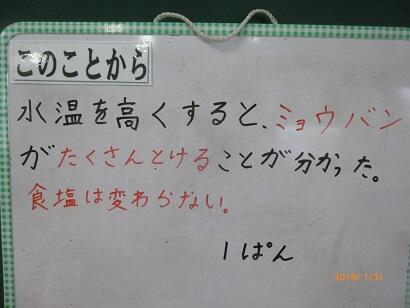 このことから
水温を高くすると、ミョウバン
がたくさんとけることが分かった。
食塩は変わらない。
1ぱん
2019/1/31